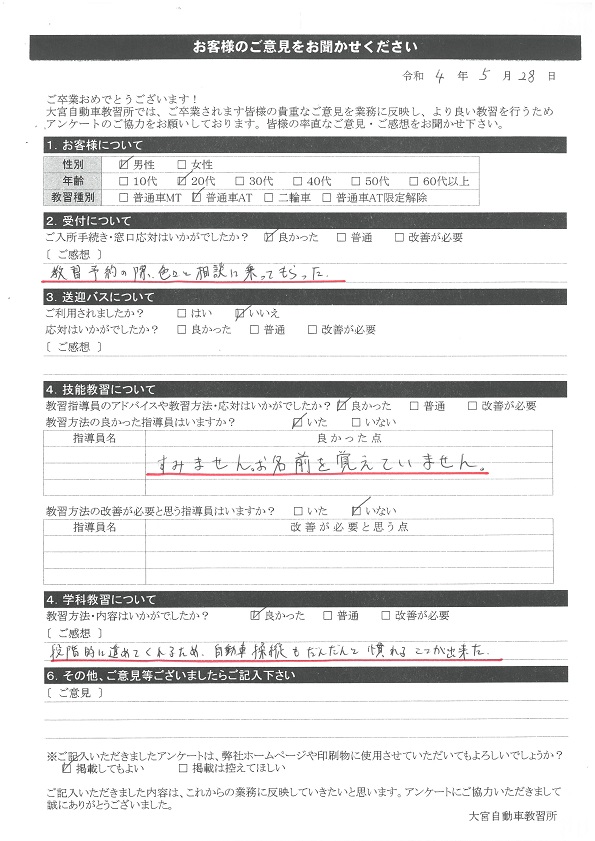 お客様のご意見をお聞かせください
令和 4 年 5 月 28 日
ご卒業おめでとうございます！
大宮自動車教習所では、ご卒業されます皆様の貴重なご意見を業務に反映し、より良い教習を行うため
アンケートのご協力をお願いしております。皆様の率直なご意見・ご感想をお聞かせ下さい。
1. お客様について
性別 ☑男性 □女性
年齢 □10代 ☑20代 □30代 □40代 □50代 □60代以上
教習種別 □普通車MT ☑普通車AT □二輪車 □普通車AT限定解除
2. 受付について
ご入所手続き・窓口応対はいかがでしたか？ ☑良かった □普通 □改善が必要
〔 ご感想 〕
教習予約の際、色々と相談に乗ってもらった.
3. 送迎バスについて
ご利用されましたか？ □はい ☑いいえ
応対はいかがでしたか？ □良かった □普通 □改善が必要
〔 ご感想 〕
4. 技能教習について
教習指導員のアドバイスや教習方法・応対はいかがでしたか？ ☑良かった □普通 □改善が必要
教習方法の良かった指導員はいますか？ ☑いた □いない
指導員名 良かった点
すみません。お名前を覚えていません。
教習方法の改善が必要と思う指導員はいますか？ □いた ☑いない
指導員名 改善が必要と思う点
4. 学科教習について
教習方法・内容はいかがでしたか？ ☑良かった □普通 □改善が必要
〔 ご感想 〕
段階的に進めてくれるため、自動車操縦もだんだんと慣れることが出来た.
6. その他、ご意見等ございましたらご記入下さい
〔 ご意見 〕
※ご記入いただきましたアンケートは、弊社ホームページや印刷物に使用させていただいてもよろしいでしょうか？
☑掲載してもよい □掲載は控えてほしい
ご記入いただきました内容は、これからの業務に反映していきたいと思います。アンケートにご協力いただきまして
誠にありがとうございました。
大宮自動車教習所